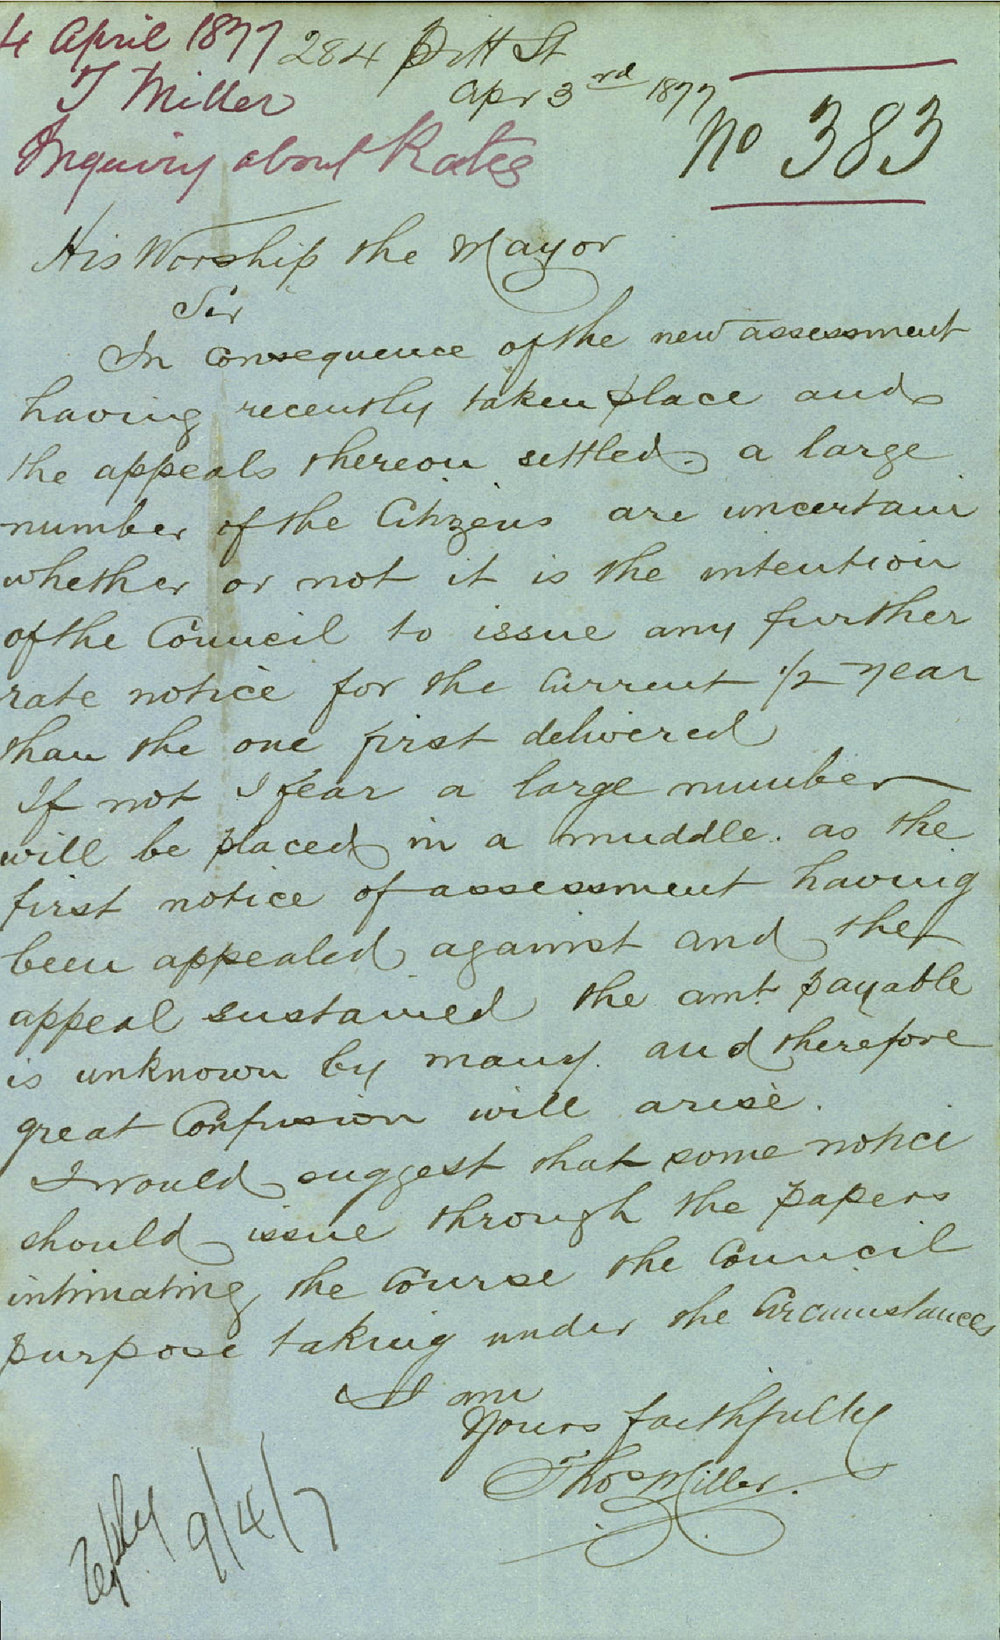 4 April 1877
T Miller
Inquiry about Rates
284 Pitt St
Apr 3rd 1877
No 383
His Worship the Mayor
Sir
In consequence of the new assessment
having recently taken place and
the appeals thereon settled. a large
number of the Citizens are uncertain
whether or not it is the intention
of the Council to issue any further
rate notice for the Current 1/2 year
than the one first delivered
If not I fear a large number
will be placed in a muddle. as the
first notice of assessment having
been appealed against and the
appeal sustained the amt. payable
is unknown by many. and therefore
great Confusion will arise.
I would suggest that some notice
should issue through the papers
intimating the Course the Council
purpose taking under the Circumstances
I am
Yours faithfully
Thos Miller.
Reply 9/4/7